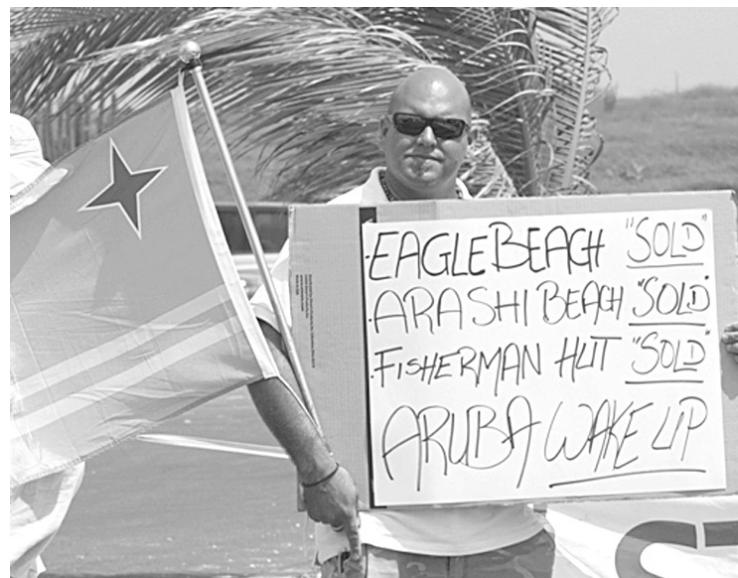 EAGLE BEACH "SOLD"
ARASHI BEACH "SOLD"
FISHERMAN HUT "SOLD"
ARUBA WAKE UP